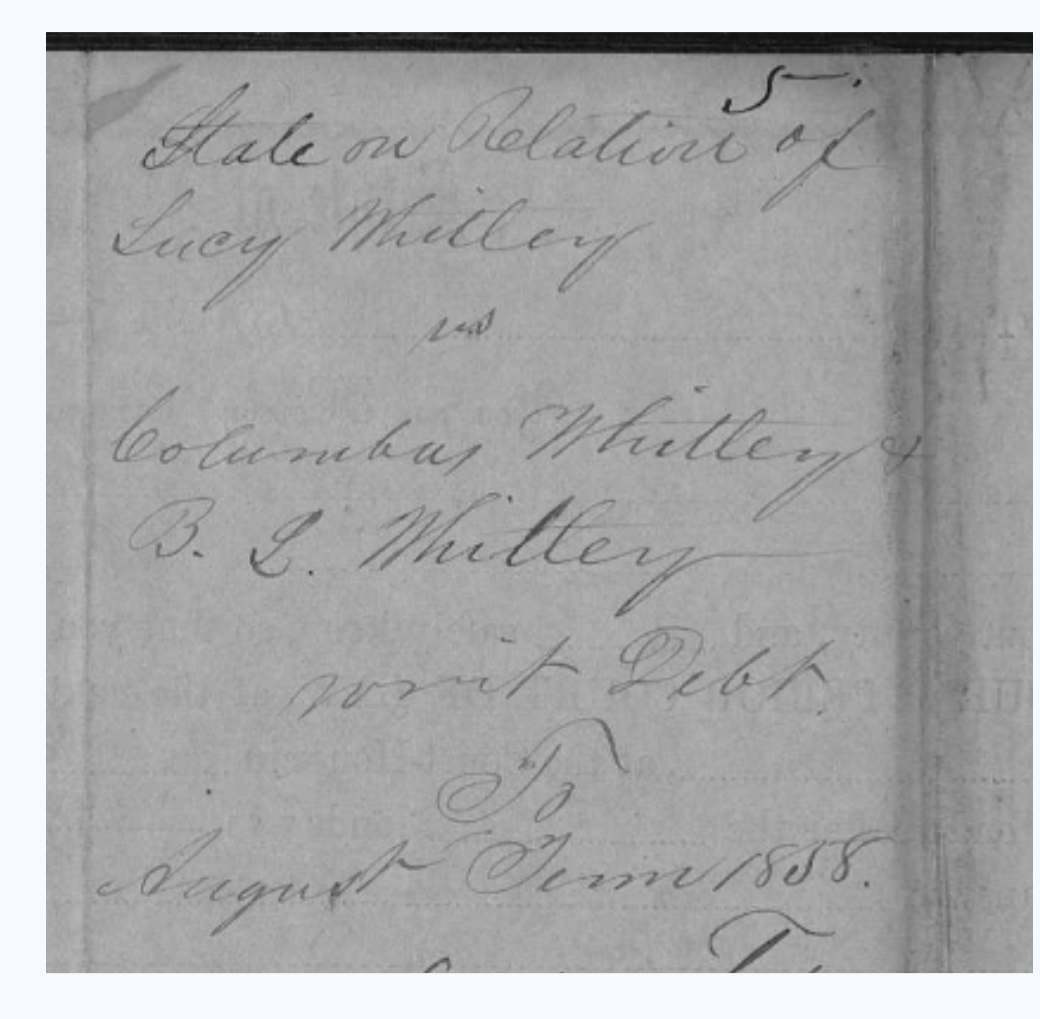 5
State on Relation of
Lucy Whitley
vs
Columbus Whitley &
B. L. Whitley
writ Debt.
To
August Term 1858.